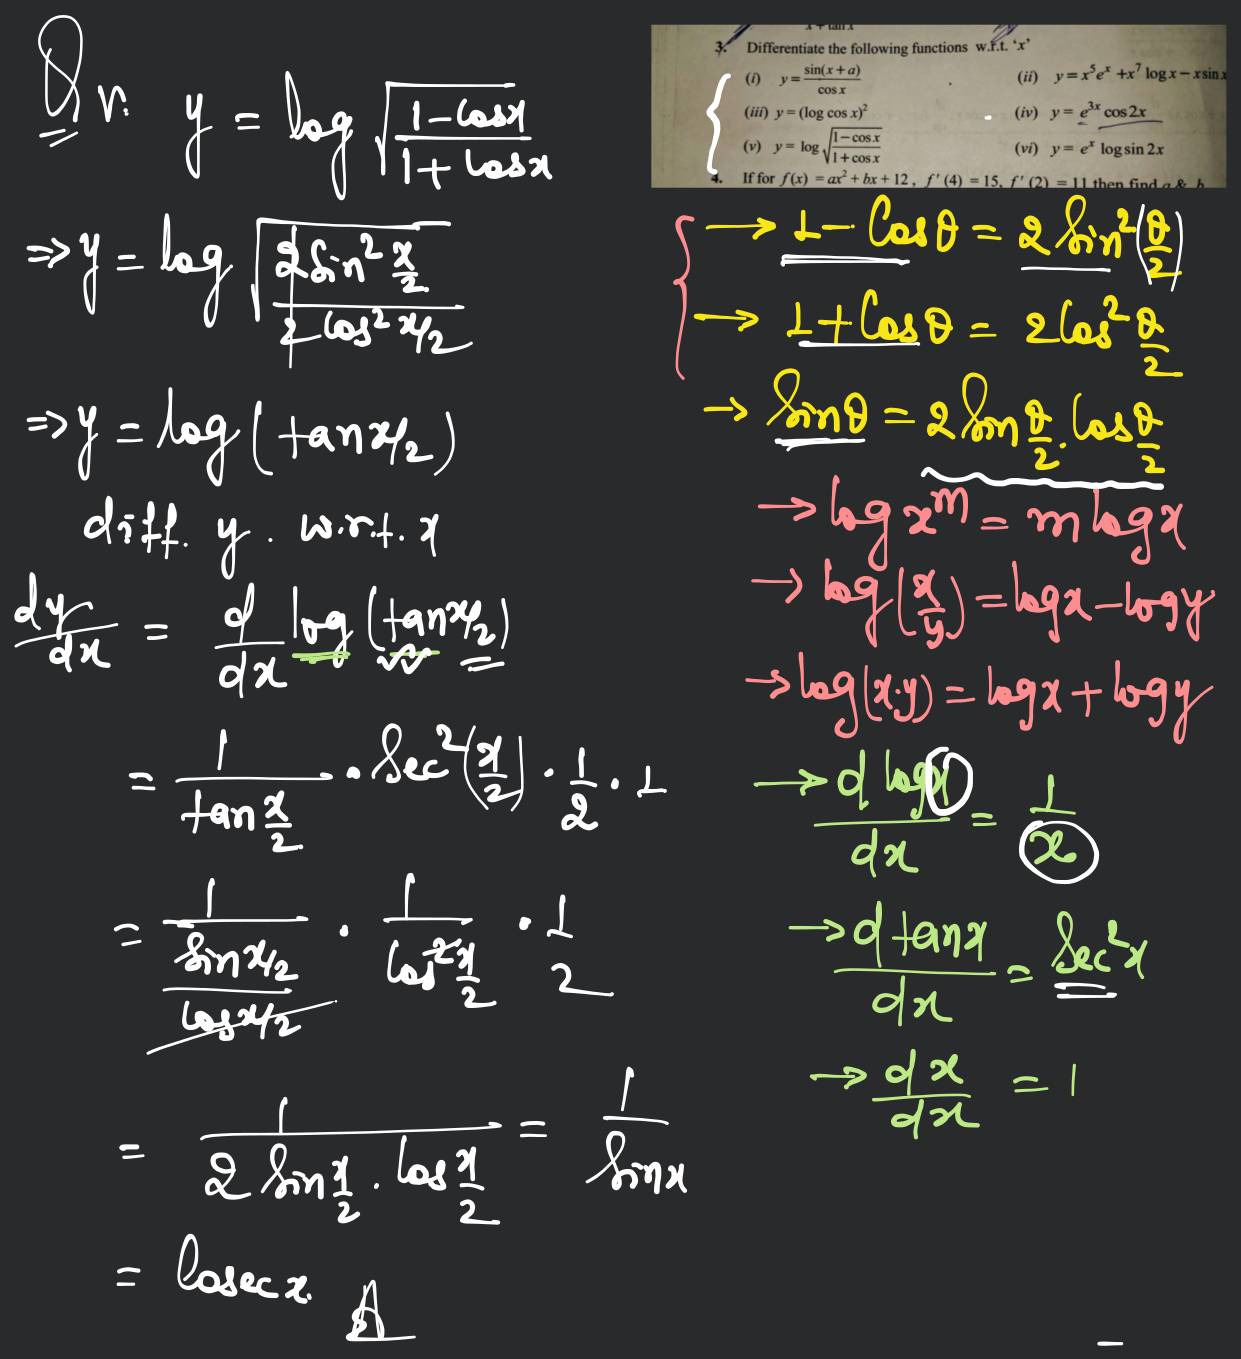 Qn. y = log √((1-cosx)/(1+cosx))
⇒ y = log √((2 sin² x/2)/(2 cos² x/2))
⇒ y = log (tan x/2)
diff. y. w.r.t. x
dy/dx = d/dx log (tan x/2)
= 1/(tan x/2) · sec² (x/2) · 1/2 · 1
= 1/((sin x/2)/(cos x/2)) · 1/(cos² x/2) · 1/2
= 1/(2 sin x/2 · cos x/2) = 1/sinx
= cosec x. A
3. Differentiate the following functions w.r.t. 'x'
(i) y = sin(x+a)/cos x (ii) y = x⁵eˣ + x⁷ log x − x sin x
(iii) y = (log cos x)² (iv) y = e³ˣ cos 2x
(v) y = log √((1−cos x)/(1+cos x)) (vi) y = eˣ log sin 2x
4. If for f(x) = ax² + bx + 12, f'(4) = 15, f'(2) = 11 then find a & b
→ 1 − cosθ = 2 sin² (θ/2)
→ 1 + cosθ = 2 cos² θ/2
→ sinθ = 2 sin θ/2 . cos θ/2
→ log xᵐ = m log x
→ log (x/y) = log x − log y
→ log (x.y) = log x + log y
→ d log x/dx = 1/x
→ d tan x/dx = sec² x
→ dx/dx = 1